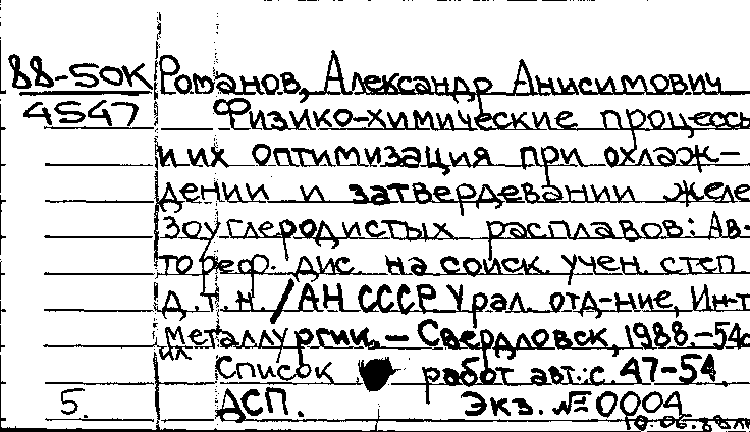 88-50К Романов, Александр Анисимович
4547 Физико-химические процессы
и их оптимизация при охлаж-
дении и затвердевании желе
зоуглеродистых расплавов: Ав-
тореф. дис. на соиск. учен. степ
д. т. н. / АН СССР Урал. отд-ние, Ин-т
металлургии. – Свердловск, 1988. – 54с
ил
Список работ авт.: с. 47-54.
5. ДСП. Экз. № 0004